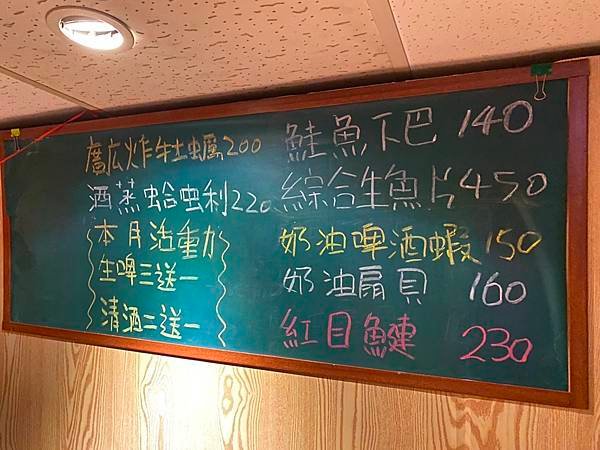 廣広炸牡蠣200
酒蒸蛤蜊220
本月活動
生啤三送一
清酒二送一
鮭魚下巴 140
綜合生魚片450
奶油啤酒蝦150
奶油扇貝 160
紅目鰱 230